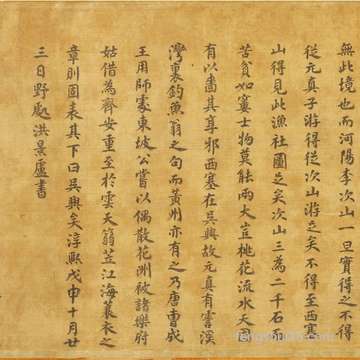 無此境也而河陽李次山一旦實得之不得
從元真子游得從次山游之矣不得至西塞
山得見此漁社圖足矣次山三為二千石而
苦貧如寠士物莫能兩大豈桃花流水天固
有以嗇其享邪西塞在吳興故元真有霅溪
灣裏釣魚翁之句而黃州亦有之乃唐曹成
王用師處東坡公嘗以偶散花洲被諸樂府
姑借為齊安重至於雲天蒻笠江海蓑衣之
章則圖表其下曰吳興矣淳熙戊申十月廿
三日野處洪景盧書